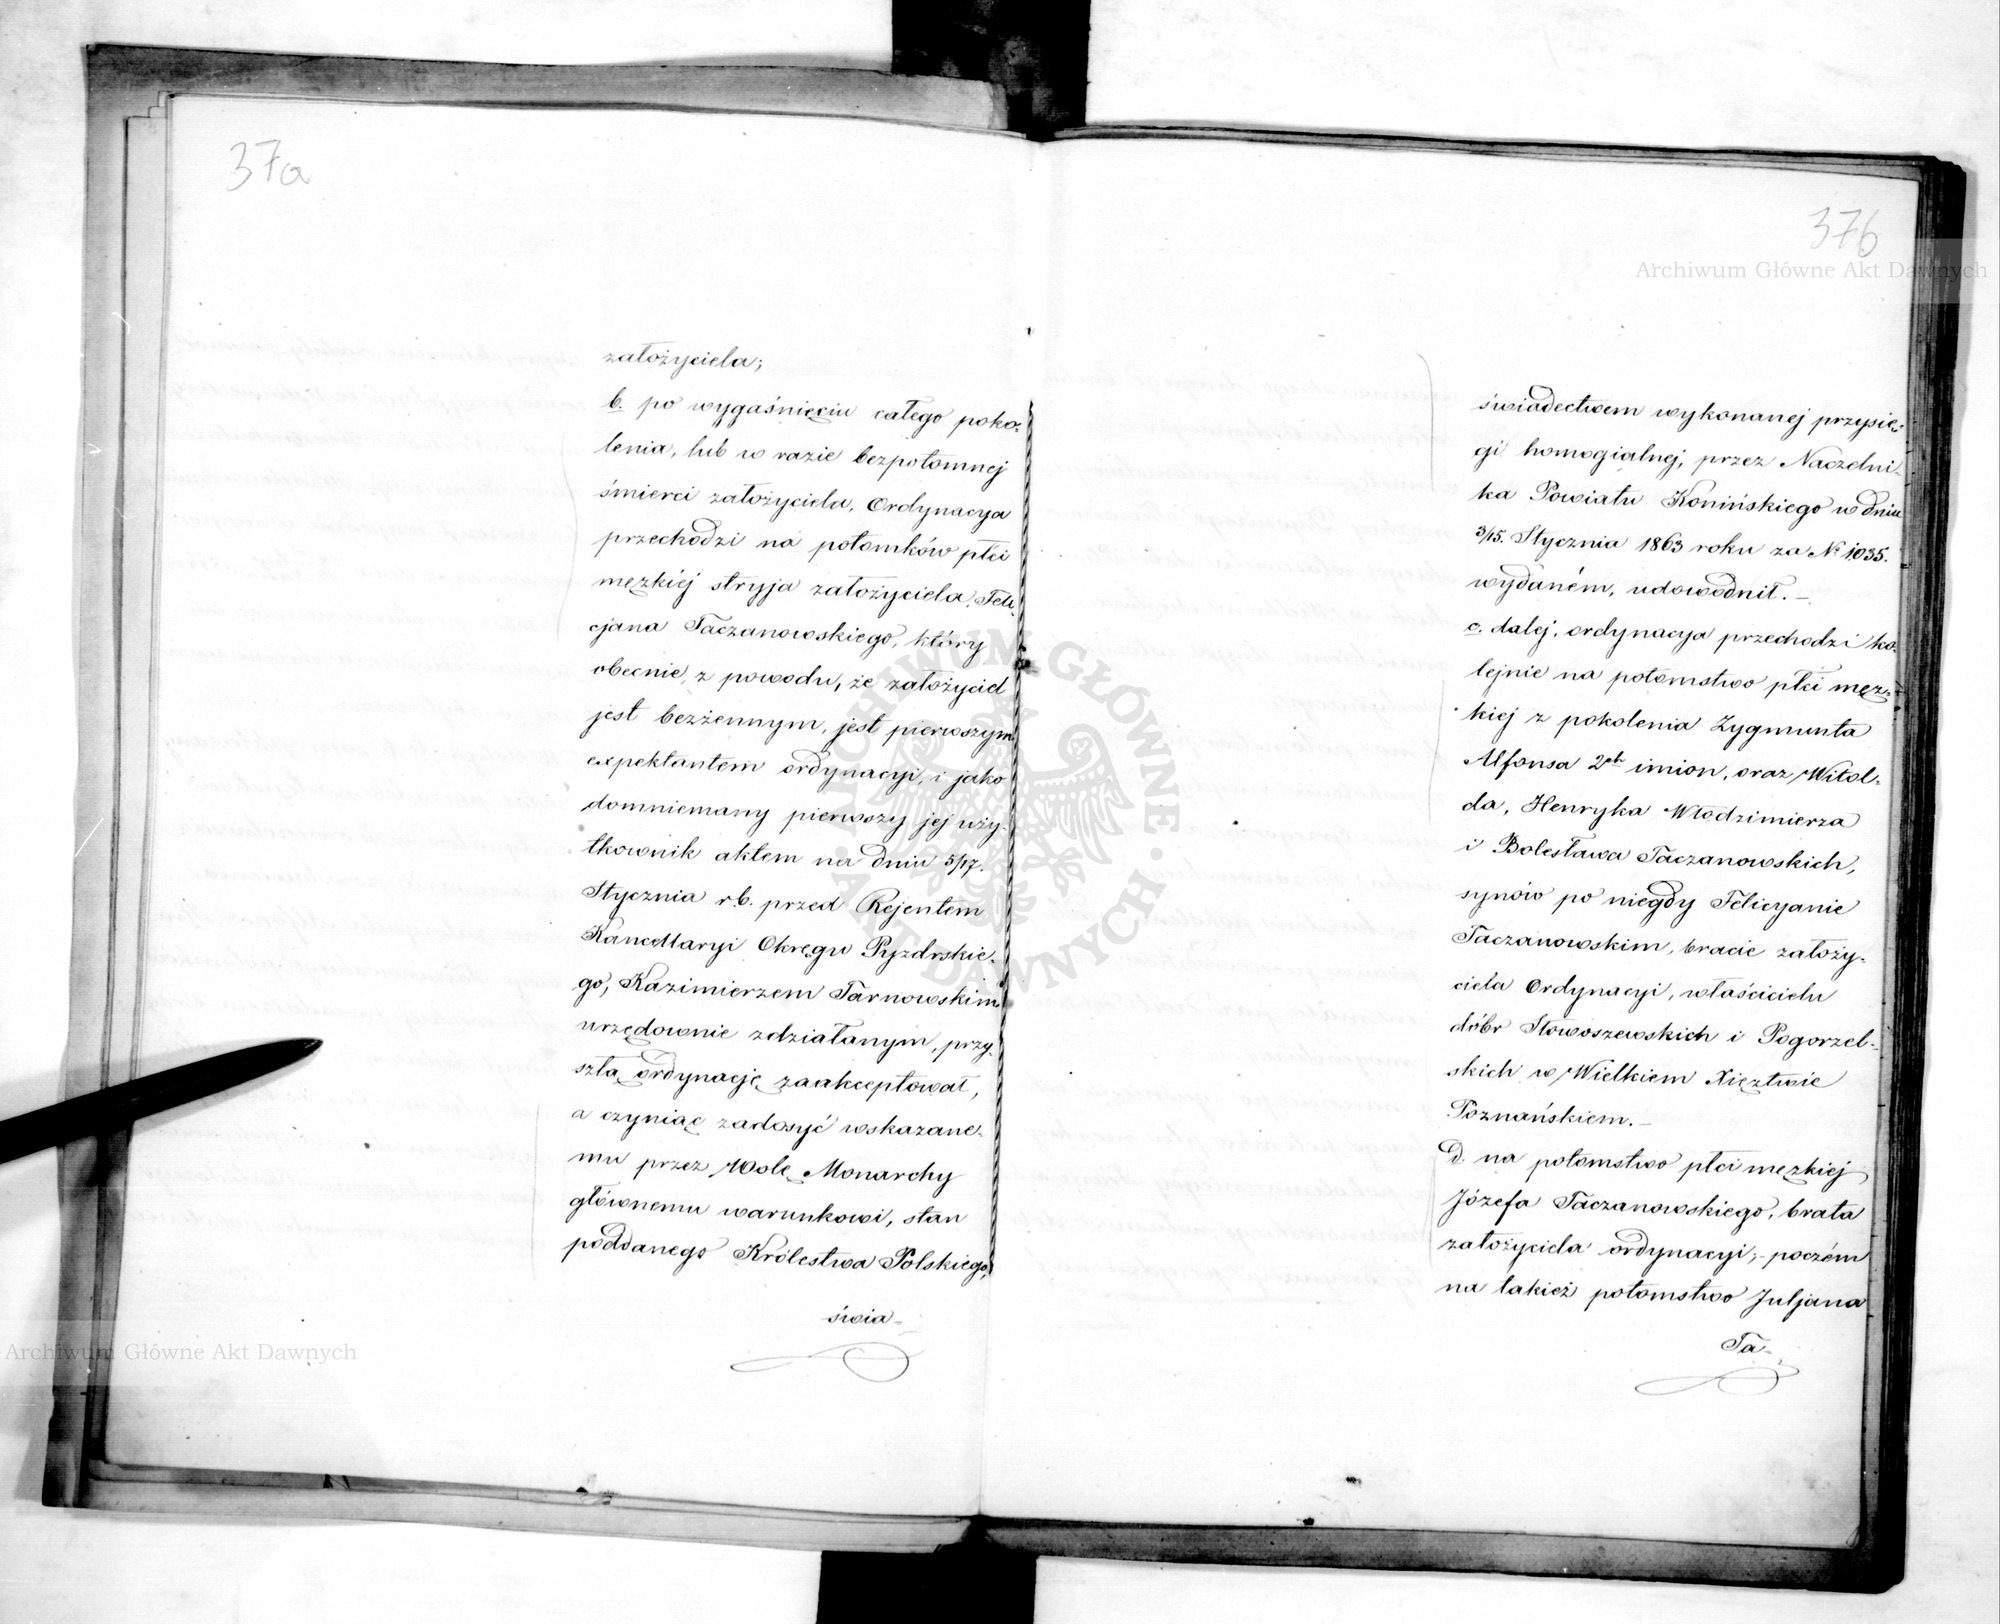 37a
założyciela;
b. po wygaśnięciu całego poko-
lenia, lub w razie bezpotomnej
śmierci założyciela, Ordynacya
przechodzi na potomków płci
męzkiéj stryja założyciela, Feli-
cjana Taczanowskiego, który
obecnie, z powodu, że założyciel
jest bezżennym, jest pierwszym
expektantem ordynacyi, i jako
domniemany pierwszy jej uży-
tkownik aktem na dniu 5/17.
Stycznia r.b. przed Rejentem
Kancellaryi Okręgu Pyzdrskie-
go, Kazimierzem Tarnowskim
urzędownie zdziałanym, przy-
szłą ordynację zaakceptował,
a czyniąc zadosyć wskazane-
mu przez Wolę Monarchy
głównemu warunkowi, stan
poddanego Królestwa Polskiego,
świa-
376
świadectwem wykonanej przysię-
gi homogialnej, przez Naczelni-
ka Powiatu Konińskiego w dniu
3/15. Stycznia 1863 roku za № 1035.
wydaném, udowodnił. –
c. dalej, ordynacya przechodzi ko-
lejnie na potomstwo płci męz-
kiej z pokolenia Zygmunta
Alfonsa 2ch imion, oraz Witol-
da, Henryka Włodzimierza
i Bolesława Taczanowskich,
synów po niegdy Felicyanie
Taczanowskim, bracie założy-
ciela Ordynacyi, właścicielu
dóbr Słowoszewskich i Pogorzel-
skich w Wielkiem Xięztwie
Poznańskiem. –
d. na potomstwo płci męzkiej
Józefa Taczanowskiego, brata
założyciela ordynacyi; – poczém
na takież potomstwo Juljana
Ta-
Archiwum Główne Akt Dawnych
Archiwum Główne Akt Dawnych
ARCHIWUM GŁÓWNE · AKT DAWNYCH ·